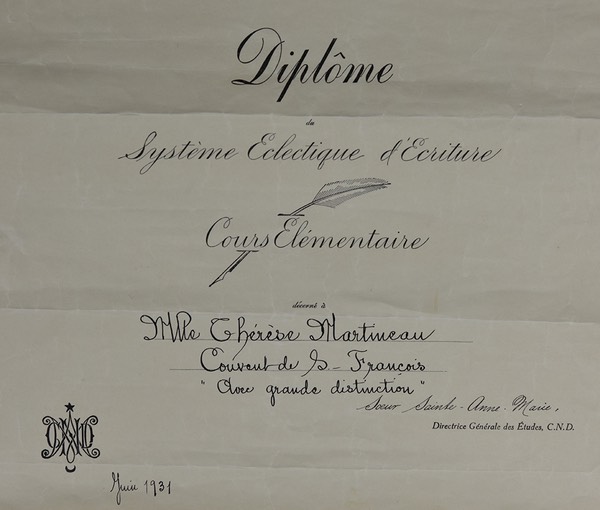 Diplôme
du
Système Eclectique d'Ecriture
Cours Elémentaire
décerné à
Mlle Thérèse Martineau
Couvent de S- François
"Avec grande distinction"
Soeur Sainte-Anne-Marie,
Directrice Générale des Études, C.N.D.
Juin 1931